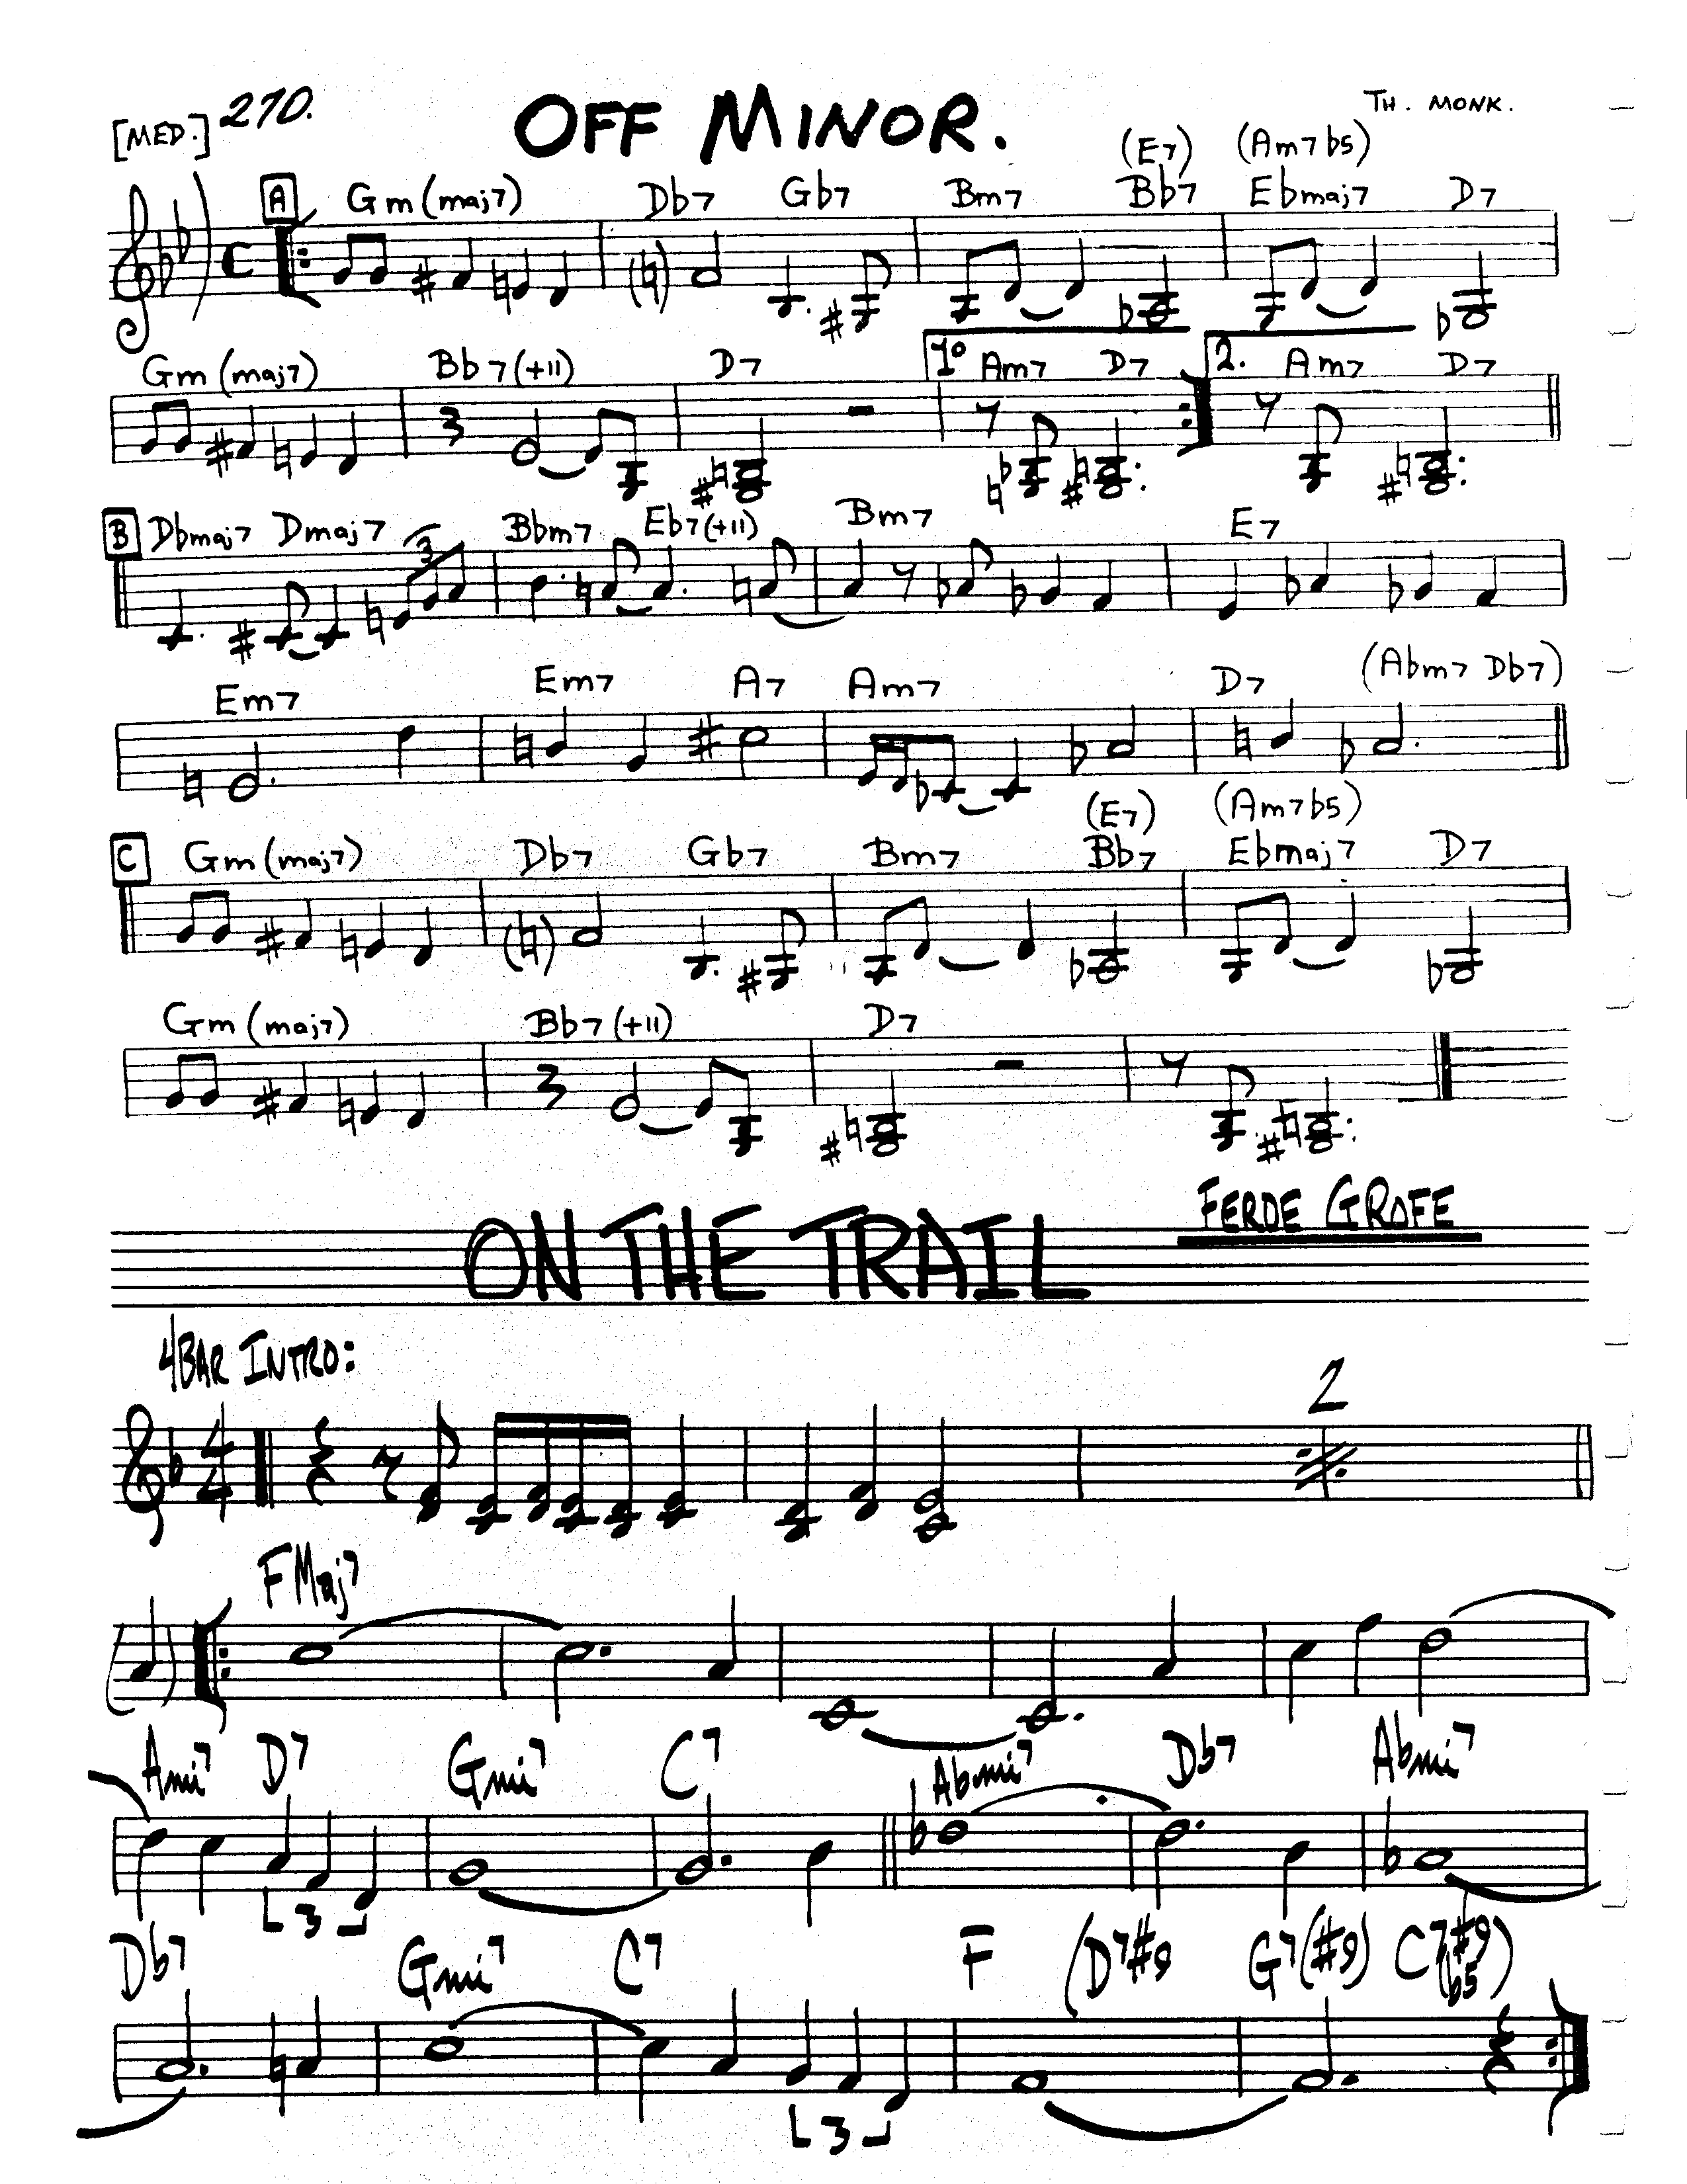 [MED.] 270. OFF MINOR. TH. MONK.
(E7) (Am7b5)
A Gm(maj7) Db7 Gb7 Bm7 Bb7 Ebmaj7 D7
Gm(maj7) Bb7(+11) D7 1° Am7 D7 2. Am7 D7
B Dbmaj7 Dmaj7 3 Bbm7 Eb7(+11) Bm7 E7
Em7 Em7 A7 Am7 D7 (Abm7 Db7)
(E7) (Am7b5)
C Gm(maj7) Db7 Gb7 Bm7 Bb7 Ebmaj7 D7
Gm(maj7) Bb7(+11) D7
ON THE TRAIL FERDE GROFE
4 BAR INTRO:
2
4
4
FMaj7
Ami7 D7 Gmi7 C7 Abmi7 Db7 Abmi7
3
Db7 Gmi7 C7 F (D7#9 G7(#9) C7(#9b5))
3